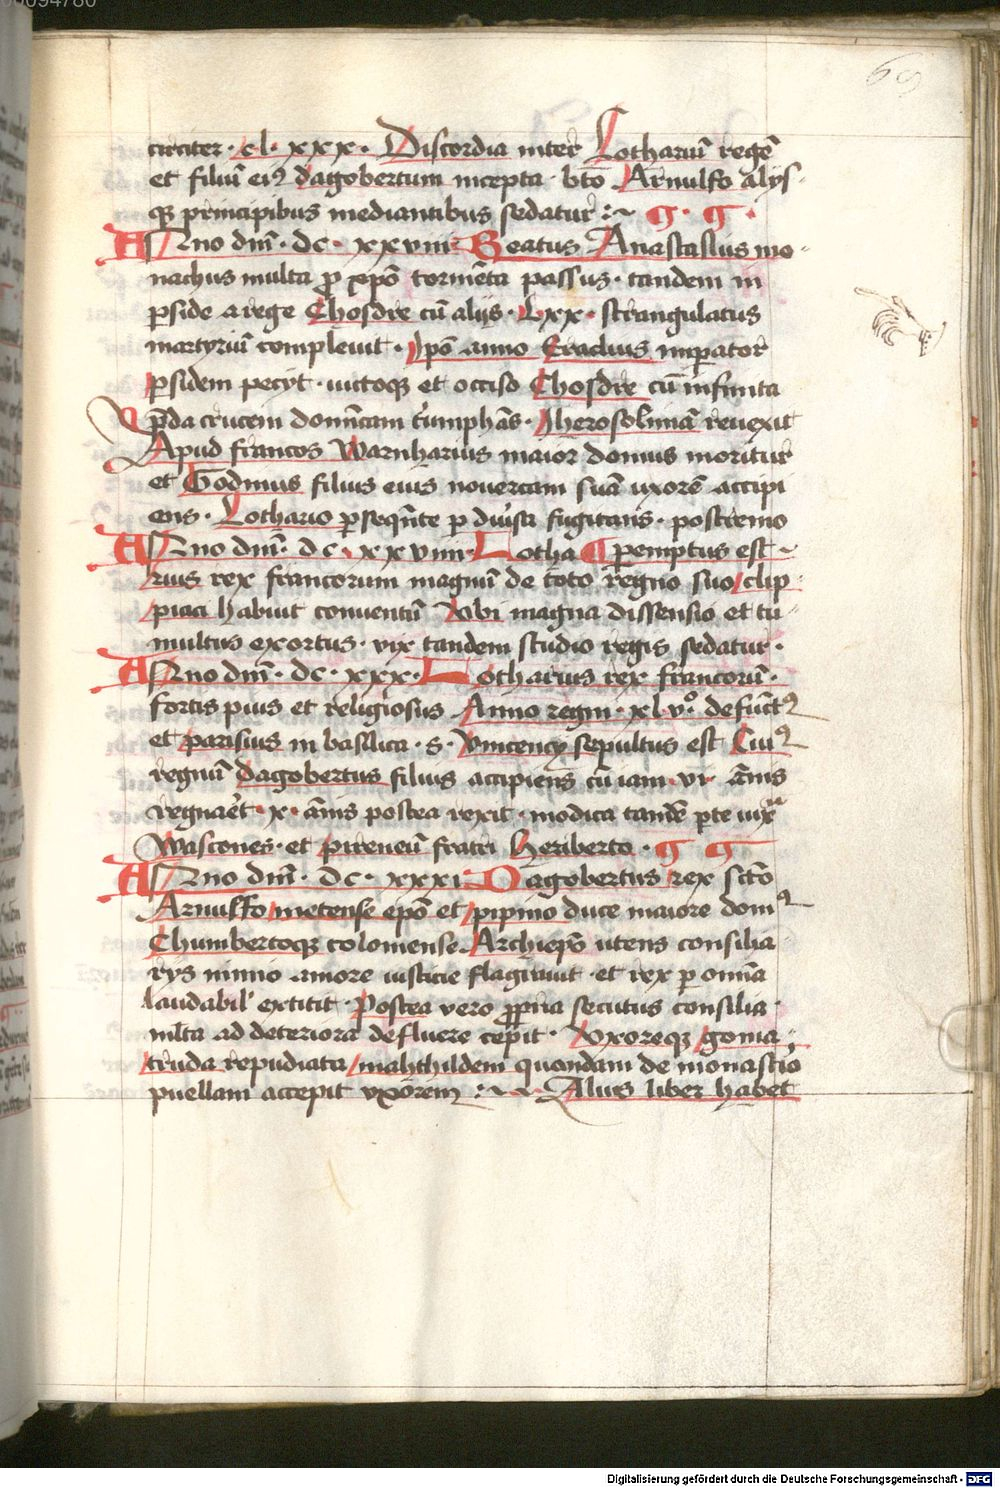 00094780
69
circiter · cl · xxx · Discordia inter Lothariū regē
et filiū eiꝰ dagobertum incepta · bto Arnulfo alys-
qꝫ principibus mediantibus sedatur :~ ¶ · ¶ ·
ANno dnī · dc · xxviii · Beatus Anastasius mo-
nachus multa ꝓ xpō tormēta passus · tandem in
ꝑside a rege Chosdre cū alijs · Lxx · strangulatus
martyriū compleuit · Ipō anno Eraclius imperator
ꝑsidem pecyt · uictoqꝫ et occiso Chosdre cū infinita
p̄da crucem domīcam triumphās · Iherosolimā reuexit
Apud francos Warnharius maior domus moritur
et Godinus filius eius nouercam suā uxorē accipi
ens · Lothario ꝑsequēte ꝑ diu̓sa fugitans · postremo
ANno dnī · dc · xxviiii · Lotha ¶ peremptus est ~
rius rex francorum magnū de toto regno suo clip-
piaci habuit conuentū Vbi magna dissensio et tu-
multus exortus · vix tandem studio regis sedatur ·
ANno dnī · dc · xxx · Lotharius rex francorū ·
fortis pius et religiosus Anno regni · xl·v° · defūctꝰ
et parisius in basilica · S · Vincencÿ sepultus est Cuiꝰ
regnū dagobertus filius accipiens cū iam · vi · ānis
regnaēt · x · ānis postea rexit · modica tandē ꝑte iuxᵃ
Wascones · et pireneū fratri Heriberto · ¶ ¶
ANno dnī · dc · xxxi · Dagobertus rex scīo
Arnulfo metense epō et pipino duce maiore domꝰ
Chumbertoqꝫ coloniense Archiepō utens consilia
rÿs nimio amore iusticie flagrauit · et rex ꝑ omīa
laudabil' extitit · Postea vero ꝓpria secutus consilia ·
mlta ad deteriora defluere cepit · Vxoreqꝫ goma-
truda repudiata mahthildem quondam de monastĩo
puellam accepit vxorem :~ ~ Alius liber habet
Digitalisierung gefördert durch die Deutsche Forschungsgemeinschaft - DFG